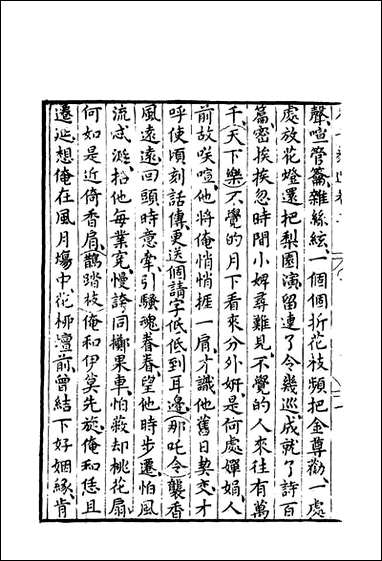 聲喧管籥雜絲絃一個個折花枝頻把金尊勸一處
處放花燈還把梨園演留連了令幾巡成就了詩百
篇密挨挨忽時間小婢尋難見不覺的人來往有萬
千(天下樂)不覺的月下看來分外妍是何處嬋娟人
前故喚喧他將俺悄悄捱一肩才識他舊日契交才
呼使頃刻話傳更送個請字低低到耳邊(那吒令)襲香
風遠遠回頭時意牽引騷魂眷眷望他時步遷怕風
流惑溺招他每業寃慢誇同擲果車怕救却桃花扇
何如是近倚香肩(鵲踏枝)俺和伊莫先旋俺和恁且
遷延想俺在風月塲中花栁壇前曾結下好姻緣肯